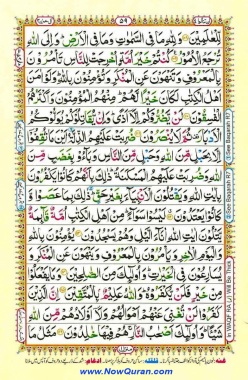 ٥٩
لِّلْعٰلَمِيْنَ وَلِلّٰهِ مَا فِى السَّمٰوٰتِ وَمَا فِى الْاَرْضِ وَاِلَى اللّٰهِ
تُرْجَعُ الْاُمُوْرُ كُنْتُمْ خَيْرَ اُمَّةٍ اُخْرِجَتْ لِلنَّاسِ تَاْمُرُوْنَ
بِالْمَعْرُوْفِ وَتَنْهَوْنَ عَنِ الْمُنْكَرِ وَتُؤْمِنُوْنَ بِاللّٰهِ وَلَوْ اٰمَنَ
اَهْلُ الْكِتٰبِ لَكَانَ خَيْرًا لَّهُمْ مِنْهُمُ الْمُؤْمِنُوْنَ وَاَكْثَرُهُمُ
الْفٰسِقُوْنَ لَنْ يَّضُرُّوْكُمْ اِلَّا اَذًى وَاِنْ يُّقَاتِلُوْكُمْ يُوَلُّوْكُمُ
الْاَدْبَارَ ثُمَّ لَا يُنْصَرُوْنَ ضُرِبَتْ عَلَيْهِمُ الذِّلَّةُ اَيْنَ مَا ثُقِفُوْا
اِلَّا بِحَبْلٍ مِّنَ اللّٰهِ وَحَبْلٍ مِّنَ النَّاسِ وَبَآءُوْ بِغَضَبٍ مِّنَ
اللّٰهِ وَضُرِبَتْ عَلَيْهِمُ الْمَسْكَنَةُ ذٰلِكَ بِاَنَّهُمْ كَانُوْا يَكْفُرُوْنَ
بِاٰيٰتِ اللّٰهِ وَيَقْتُلُوْنَ الْاَنْۢبِيَآءَ بِغَيْرِ حَقٍّ ذٰلِكَ بِمَا عَصَوْا وَّ
كَانُوْا يَعْتَدُوْنَ لَيْسُوْا سَوَآءً مِنْ اَهْلِ الْكِتٰبِ اُمَّةٌ قَآئِمَةٌ
يَّتْلُوْنَ اٰيٰتِ اللّٰهِ اٰنَآءَ الَّيْلِ وَهُمْ يَسْجُدُوْنَ يُؤْمِنُوْنَ بِاللّٰهِ
وَالْيَوْمِ الْاٰخِرِ وَيَاْمُرُوْنَ بِالْمَعْرُوْفِ وَيَنْهَوْنَ عَنِ الْمُنْكَرِ وَ
يُسَارِعُوْنَ فِى الْخَيْرٰتِ وَاُولٰٓئِكَ مِنَ الصّٰلِحِيْنَ وَمَا يَفْعَلُوْا
مِنْ خَيْرٍ فَلَنْ يُّكْفَرُوْهُ وَاللّٰهُ عَلِيْمٌۢ بِالْمُتَّقِيْنَ اِنَّ الَّذِيْنَ
كَفَرُوْا لَنْ تُغْنِىَ عَنْهُمْ اَمْوَالُهُمْ وَلَآ اَوْلَادُهُمْ مِّنَ اللّٰهِ
شَيْـًٔا وَاُولٰٓئِكَ اَصْحٰبُ النَّارِ هُمْ فِيْهَا خٰلِدُوْنَ مَثَلُ مَا
www.NowQuran.com